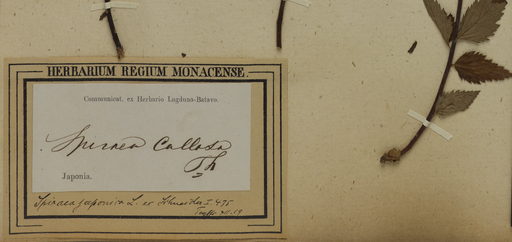 HERBARIUM REGIUM MONACENSE.
Communicat. ex Herbario Lugduno-Batavo.
Spiraea Callosa
Th
Japonia.
Spiraea japonica L. ex Schneider I. 475